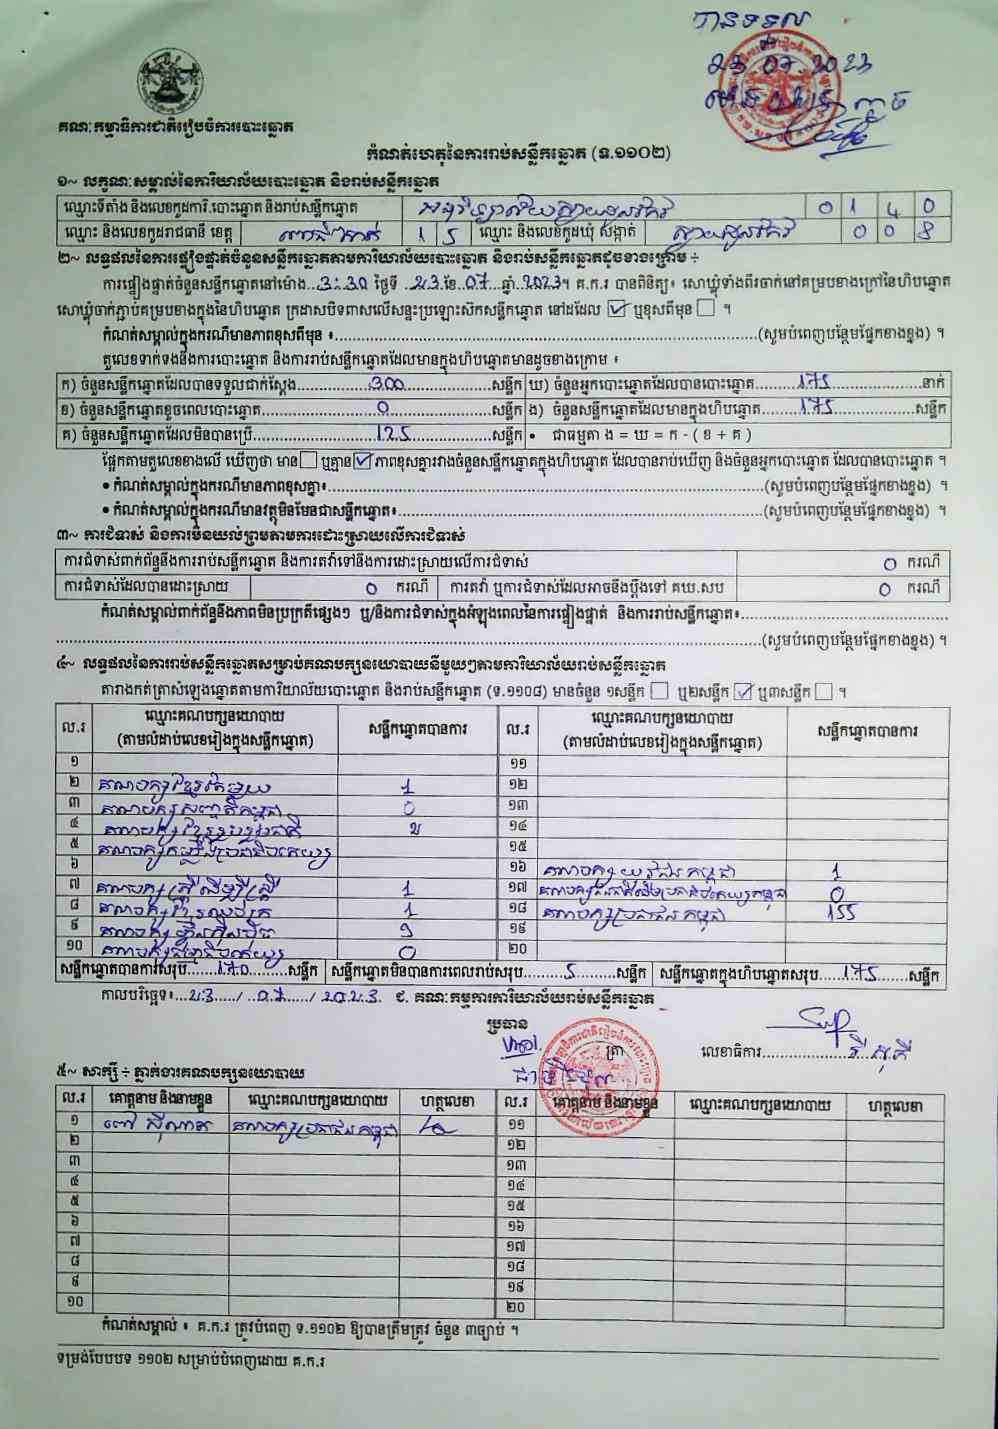 បានទទួល
23 07 2023
គណៈកម្មាធិការជាតិរៀបចំការបោះឆ្នោត
កំណត់ហេតុនៃការរាប់សន្លឹកឆ្នោត (ទ.១១០២)
១~ លក្ខណៈសម្គាល់នៃការិយាល័យបោះឆ្នោត និងរាប់សន្លឹកឆ្នោត
ឈ្មោះទីតាំង និងលេខកូដការិ.បោះឆ្នោត និងរាប់សន្លឹកឆ្នោត 0 1 4 0
ឈ្មោះ និងលេខកូដរាជធានី ខេត្ត ពោធិ៍សាត់ 1 5 ឈ្មោះ និងលេខកូដឃុំ សង្កាត់ ស្វាយដូនកែវ 0 0 8
២~ លទ្ធផលនៃការផ្ទៀងផ្ទាត់ចំនួនសន្លឹកឆ្នោតតាមការិយាល័យបោះឆ្នោត និងរាប់សន្លឹកឆ្នោតដូចខាងក្រោម ÷
ការផ្ទៀងផ្ទាត់ចំនួនសន្លឹកឆ្នោតនៅម៉ោង...3:30 ថ្ងៃទី ..23.ខែ..07..ឆ្នាំ..2023។ គ.ក.រ បានពិនិត្យ៖ សោឃ្លុំទាំងពីរចាក់នៅគម្របខាងក្រៅនៃហិបឆ្នោត
សោឃ្លុំចាក់ភ្ជាប់គម្របខាងក្នុងនៃហិបឆ្នោត ក្រដាសបិទពាសលើសន្ទះប្រឡោះស៊កសន្លឹកឆ្នោត នៅដដែល ☑ ឬខុសពីមុន ☐ ។
កំណត់សម្គាល់ក្នុងករណីមានភាពខុសពីមុន ៖......(សូមបំពេញបន្ថែមផ្នែកខាងខ្នង) ។
តួលេខទាក់ទងនឹងការបោះឆ្នោត និងការរាប់សន្លឹកឆ្នោតដែលមានក្នុងហិបឆ្នោតមានដូចខាងក្រោម ៖
ក) ចំនួនសន្លឹកឆ្នោតដែលបានទទួលជាក់ស្តែង......300......សន្លឹក ឃ) ចំនួនអ្នកបោះឆ្នោតដែលបានបោះឆ្នោត......175......នាក់
ខ) ចំនួនសន្លឹកឆ្នោតខូចពេលបោះឆ្នោត......0......សន្លឹក ង) ចំនួនសន្លឹកឆ្នោតដែលមានក្នុងហិបឆ្នោត......175......សន្លឹក
គ) ចំនួនសន្លឹកឆ្នោតដែលមិនបានប្រើ......125......សន្លឹក • ជាធម្មតា ង = ឃ = ក - ( ខ + គ )
ផ្អែកតាមតួលេខខាងលើ ឃើញថា មាន ☐ ឬគ្មាន ☑ ភាពខុសគ្នារវាងចំនួនសន្លឹកឆ្នោតក្នុងហិបឆ្នោត ដែលបានរាប់ឃើញ និងចំនួនអ្នកបោះឆ្នោត ដែលបានបោះឆ្នោត ។
• កំណត់សម្គាល់ក្នុងករណីមានភាពខុសគ្នា៖......(សូមបំពេញបន្ថែមផ្នែកខាងខ្នង) ។
• កំណត់សម្គាល់ក្នុងករណីមានវត្ថុមិនមែនជាសន្លឹកឆ្នោត៖......(សូមបំពេញបន្ថែមផ្នែកខាងខ្នង) ។
៣~ ការជំទាស់ និងការមិនយល់ព្រមតាមការដោះស្រាយលើការជំទាស់
ការជំទាស់ពាក់ព័ន្ធនឹងការរាប់សន្លឹកឆ្នោត និងការតវ៉ាទៅនឹងការដោះស្រាយលើការជំទាស់ 0 ករណី
ការជំទាស់ដែលបានដោះស្រាយ 0 ករណី ការតវ៉ា ឬការជំទាស់ដែលអាចនឹងប្តឹងទៅ គឃ.សប 0 ករណី
កំណត់សម្គាល់ពាក់ព័ន្ធនឹងភាពមិនប្រក្រតីផ្សេងៗ ឬ/និងការជំទាស់ក្នុងអំឡុងពេលនៃការផ្ទៀងផ្ទាត់ និងការរាប់សន្លឹកឆ្នោត៖......
......(សូមបំពេញបន្ថែមផ្នែកខាងខ្នង) ។
៤~ លទ្ធផលនៃការរាប់សន្លឹកឆ្នោតសម្រាប់គណបក្សនយោបាយនីមួយៗតាមការិយាល័យរាប់សន្លឹកឆ្នោត
តារាងកត់ត្រាសំឡេងឆ្នោតតាមការិយាល័យបោះឆ្នោត និងរាប់សន្លឹកឆ្នោត (ទ.១១០៨) មានចំនួន ១សន្លឹក ☐ ឬ២សន្លឹក ☑ ឬ៣សន្លឹក ☐ ។
ល.រ ឈ្មោះគណបក្សនយោបាយ (តាមលំដាប់លេខរៀងក្នុងសន្លឹកឆ្នោត) សន្លឹកឆ្នោតបានការ ល.រ ឈ្មោះគណបក្សនយោបាយ (តាមលំដាប់លេខរៀងក្នុងសន្លឹកឆ្នោត) សន្លឹកឆ្នោតបានការ
១ ១១
២ គណបក្សខ្មែរតែមួយ 1 ១២
៣ គណបក្សសញ្ជាតិកម្ពុជា 0 ១៣
៤ គណបក្សខ្មែររួបរួមជាតិ 2 ១៤
៥ គណបក្សកម្លាំងប្រជាធិបតេយ្យ ១៥
៦ ១៦ គណបក្សយុវជនកម្ពុជា 1
៧ គណបក្សស្ត្រីដើម្បីស្ត្រី 1 ១៧ 0
៨ 1 ១៨ គណបក្សប្រជាជនកម្ពុជា 155
៩ គណបក្សហ្វ៊ុនស៊ិនប៉ិច 9 ១៩
១០ គណបក្សធម្មាធិបតេយ្យ 0 ២០
សន្លឹកឆ្នោតបានការសរុប......170......សន្លឹក សន្លឹកឆ្នោតមិនបានការពេលរាប់សរុប......5......សន្លឹក សន្លឹកឆ្នោតក្នុងហិបឆ្នោតសរុប......175......សន្លឹក
កាលបរិច្ឆេទ៖...23...../...07..../ 2023. ជ. គណៈកម្មការការិយាល័យរាប់សន្លឹកឆ្នោត
ប្រធាន
ត្រា លេខាធិការ......
៥~ សាក្សី ÷ ភ្នាក់ងារគណបក្សនយោបាយ
ល.រ គោត្តនាម និងនាមខ្លួន ឈ្មោះគណបក្សនយោបាយ ហត្ថលេខា ល.រ គោត្តនាម និងនាមខ្លួន ឈ្មោះគណបក្សនយោបាយ ហត្ថលេខា
១ គណបក្សប្រជាជនកម្ពុជា ១១
២ ១២
៣ ១៣
៤ ១៤
៥ ១៥
៦ ១៦
៧ ១៧
៨ ១៨
៩ ១៩
១០ ២០
កំណត់សម្គាល់ ៖ គ.ក.រ ត្រូវបំពេញ ទ.១១០២ ឱ្យបានត្រឹមត្រូវ ចំនួន ៣ច្បាប់ ។
ទម្រង់បែបបទ ១១០២ សម្រាប់បំពេញដោយ គ.ក.រ